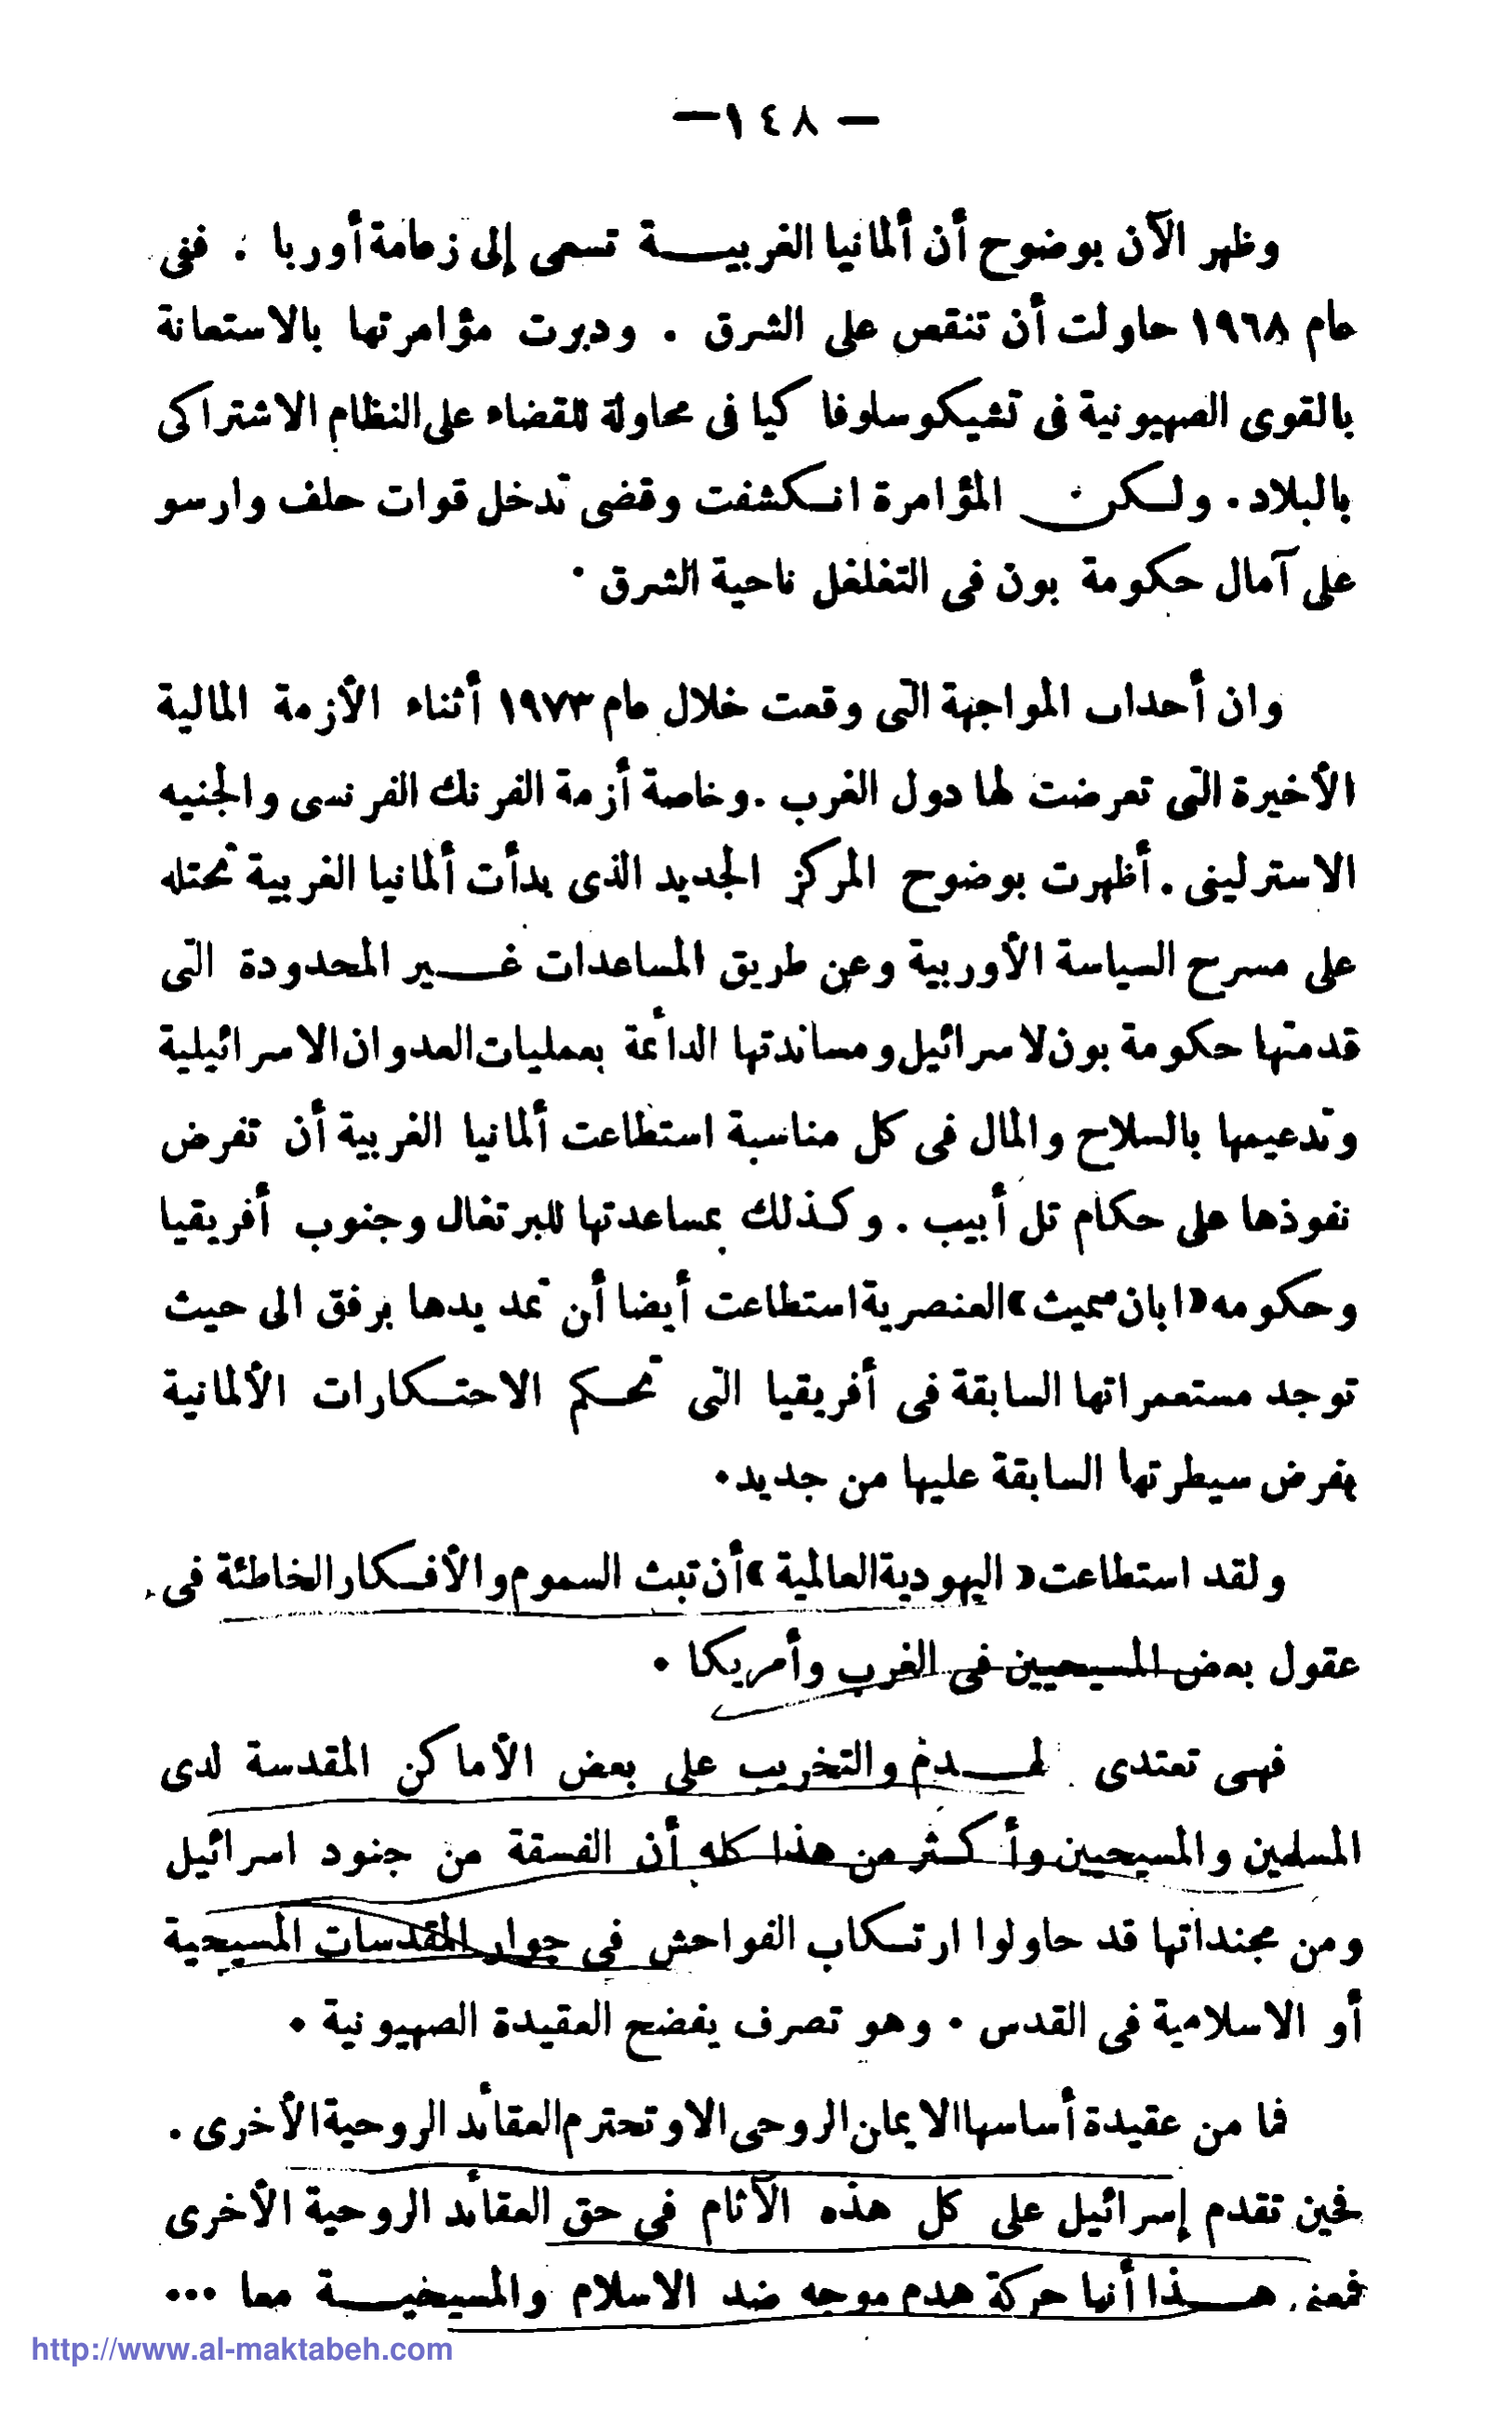 — ١٤٨ —
وظهر الآن بوضوح أن ألمانيا الغربيــة تسعى إلى زعامة أوربا . ففى
عام ١٩٦٨ حاولت أن تنقص على الشرق . ودبرت مؤامرتها بالاستعانة
بالقوى الصهيونية فى تشيكوسلوفا كيا فى محاولة للقضاء على النظام الاشتراكى
بالبلاد . ولكن المؤامرة انكشفت وقضى تدخل قوات حلف وارسو
على آمال حكومة بون فى التغلغل ناحية الشرق .
وان أحداب المواجهة التى وقعت خلال عام ١٩٧٣ أثناء الأزمة المالية
الأخيرة التى تعرضت لها دول الغرب . وخاصة أزمة الفرنك الفرنسى والجنيه
الاسترلينى . أظهرت بوضوح المركز الجديد الذى بدأت ألمانيا الغربية تحتله
على مسرح السياسة الأوربية وعن طريق المساعدات غــير المحدودة التى
قدمتها حكومة بون لاسرائيل ومساندتها الدائمة بعمليات العدوان الاسرائيلية
وتدعيمها بالسلاح والمال فى كل مناسبة استطاعت ألمانيا الغربية أن تفرض
نفوذها على حكام تل أبيب . وكذلك بمساعدتها للبرتغال وجنوب أفريقيا
وحكومه «ابان سميث» العنصرية استطاعت أيضا أن تمد يدها برفق الى حيث
توجد مستعمراتها السابقة فى أفريقيا التى تحكم الاحتكارات الألمانية
بفرض سيطرتها السابقة عليها من جديد .
ولقد استطاعت « اليهودية العالمية » أن تبث السموم والأفكار الخاطئة فى
عقول بعض المسيحيين فى الغرب وأمريكا .
فهى تعتدى لهــدم والتخريب على بعض الأماكن المقدسة لدى
المسلمين والمسيحيين وأكثر من هذا كله أن الفسقة من جنود اسرائيل
ومن مجنداتها قد حاولوا ارتكاب الفواحش فى جوار المقدسات المسيحية
أو الاسلامية فى القدس . وهو تصرف يفضح العقيدة الصهيونية .
فما من عقيدة أساسها الايمان الروحى الا وتحترم العقائد الروحية الأخرى .
فحين تقدم إسرائيل على كل هذه الآثام فى حق العقائد الروحية الأخرى
فمعنى هــذا أنها حركة هدم موجه ضد الاسلام والمسيحيــة معا ...
http://www.al-maktabeh.com